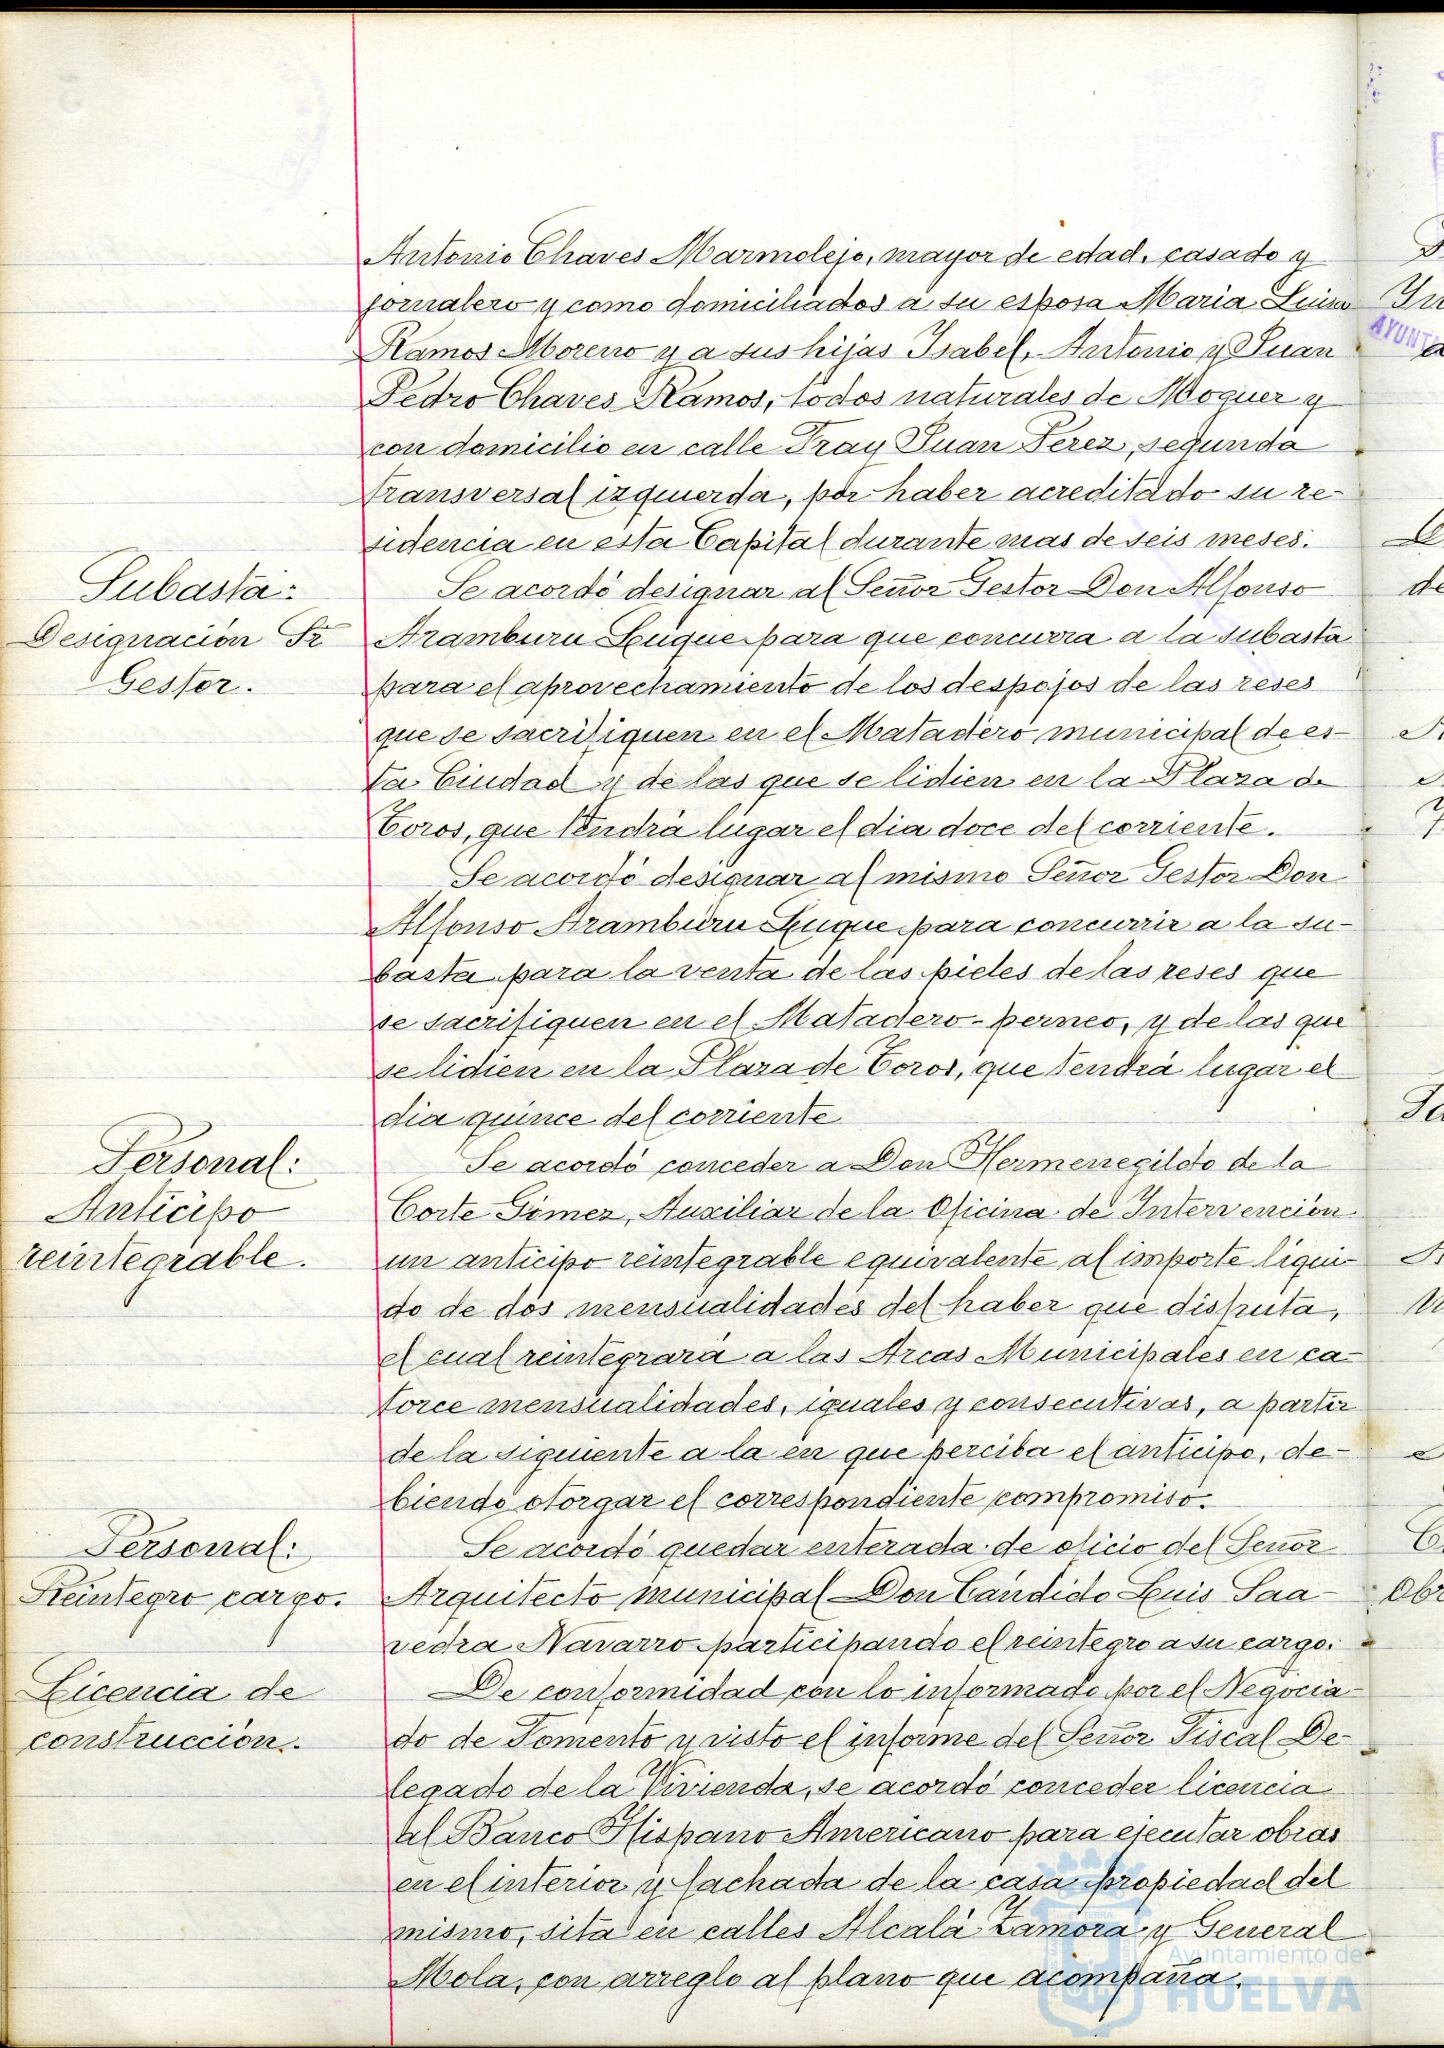 Antonio Chaves Marmolejo, mayor de edad, casado y
jornalero y como domiciliados a su esposa Maria Luisa
Ramos Moreno y a sus hijas Isabel, Antonio y Juan
Pedro Chaves Ramos, todos naturales de Moguer y
con domicilio en calle Fray Juan Perez, segunda
transversal izquierda, por haber acreditado su re-
sidencia en esta Capital durante mas de seis meses.
Subasta:
Designación Sr
Gestor.
Se acordó designar al Señor Gestor Don Alfonso
Aramburu Luque para que concurra a la subasta
para el aprovechamiento de los despojos de las reses
que se sacrifiquen en el Matadero municipal de es-
ta Ciudad y de las que se lidien en la Plaza de
Toros, que tendrá lugar el dia doce del corriente.
Se acordó designar al mismo Señor Gestor Don
Alfonso Aramburu Luque para concurrir a la su-
basta para la venta de las pieles de las reses que
se sacrifiquen en el Matadero-perneo, y de las que
se lidien en la Plaza de Toros, que tendrá lugar el
dia quince del corriente
Personal:
Anticipo
reintegrable.
Se acordó conceder a Don Hermenegildo de la
Corte Gimez, Auxiliar de la Oficina de Intervención
un anticipo reintegrable equivalente al importe liqui-
do de dos mensualidades del haber que disfruta,
el cual reintegrará a las Arcas Municipales en ca-
torce mensualidades, iguales y consecutivas, a partir
de la siguiente a la en que perciba el anticipo, de-
biendo otorgar el correspondiente compromiso.
Personal:
Reintegro cargo.
Se acordó quedar enterada de oficio del Señor
Arquitecto municipal Don Cándido Luis Saa-
vedra Navarro participando el reintegro a su cargo.
Licencia de
construcción.
De conformidad con lo informado por el Negocia-
do de Fomento y visto el informe del Señor Fiscal De-
legado de la Vivienda, se acordó conceder licencia
al Banco Hispano Americano para ejecutar obras
en el interior y fachada de la casa propiedad del
mismo, sita en calles Alcalá Zamora y General
Mola, con arreglo al plano que acompaña.
Ayuntamiento de
HUELVA